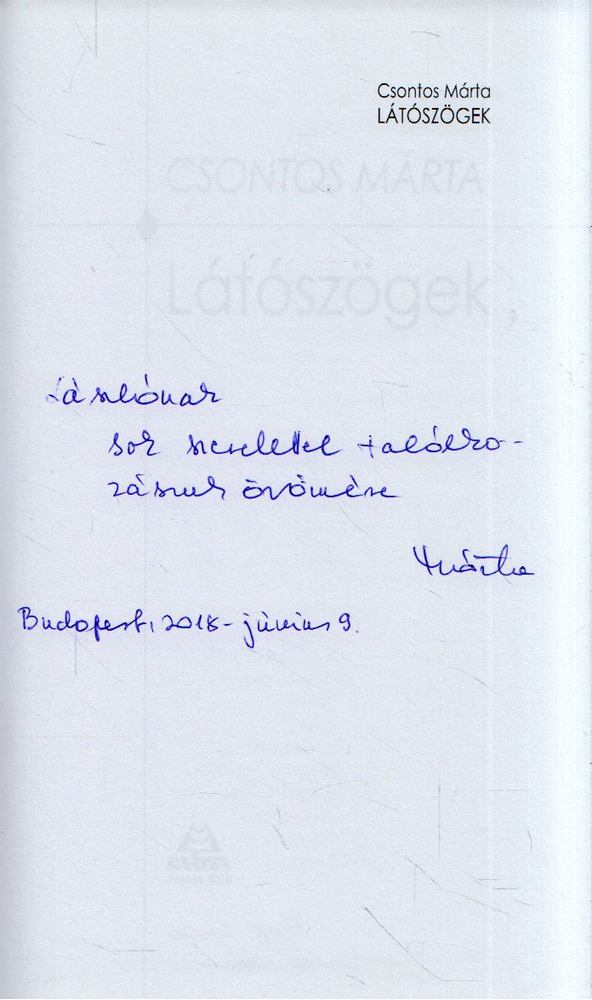 Csontos Márta
LÁTÓSZÖGEK
CSONTOS MÁRTA
Látószögek
Lászlónak
sok szeretettel találko-
zásunk örömére
Márta
Budapest, 2018. június 9.